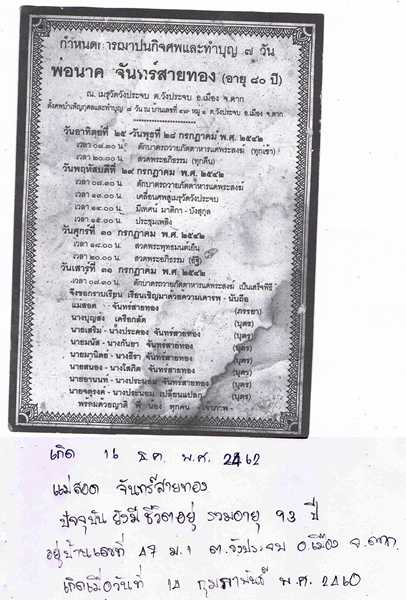 กำหนดการฌาปนกิจศพและทำบุญ ๗ วัน
พ่อนาค จันทร์สายทอง (อายุ ๘๐ ปี)
ณ. เมรุวัดวังประจบ ต.วังประจบ อ.เมือง จ.ตาก
ตั้งศพบำเพ็ญกุศลและทำบุญ ๗ วัน ณ บ้านเลขที่ ๔๗ หมู่ ๑ ต.วังประจบ อ.เมือง จ.ตาก
วันอาทิตย์ที่ ๒๕ -วันพุธที่ ๒๘ กรกฎาคม พ.ศ. ๒๕๔๒
เวลา ๐๗.๓๐ น. ตักบาตรถวายภัตตาหารแด่พระสงฆ์ (ทุกเช้า)
เวลา ๒๐.๐๐ น. สวดพระอภิธรรม (ทุกคืน)
วันพฤหัสบดีที่ ๒๙ กรกฎาคม พ.ศ. ๒๕๔๒
เวลา ๐๗.๓๐ น. ตักบาตรถวายภัตตาหารแด่พระสงฆ์
เวลา ๑๓.๐๐ น. เคลื่อนศพสู่เมรุวัดวังประจบ
เวลา ๑๔.๐๐ น. มีเทศน์ มาติกา - บังสุกุล
เวลา ๑๕.๐๐ น. ประชุมเพลิง
วันศุกร์ที่ ๓๐ กรกฎาคม พ.ศ. ๒๕๔๒
เวลา ๑๘.๐๐ น. สวดพระพุทธมนต์เย็น
เวลา ๒๐.๐๐ น. สวดพระอภิธรรม
วันเสาร์ที่ ๓๑ กรกฎาคม พ.ศ. ๒๕๔๒
เวลา ๐๗.๓๐ น. ตักบาตรถวายภัตตาหารแด่พระสงฆ์ เป็นเสร็จพิธี
จึงขอกราบเรียน เรียนเชิญมาด้วยความเคารพ - นับถือ
แม่สอด จันทร์สายทอง (ภรรยา)
นางบุญส่ง เครือกลัด (บุตร)
นายเสริม - นางประคอง จันทร์สายทอง (บุตร)
นายมนัส - นางกันยา จันทร์สายทอง (บุตร)
นายมานิตย์ - นางธีรา จันทร์สายทอง (บุตร)
นายสนอง - นางโสภิต จันทร์สายทอง (บุตร)
นายอานนท์ - นางประนอม จันทร์สายทอง (บุตร)
นายจตุรงค์ - นางประนอม เปลี่ยนแปลก (บุตร)
พร้อมด้วยญาติ พี่ น้อง ทุกคน
เกิด 16 ธ.ค. พ.ศ. 2462
แม่สอด จันทร์สายทอง
ปัจจุบัน ยังมีชีวิตอยู่ รวมอายุ 93 ปี
อยู่บ้านเลขที่ 47 ม.1 ต.วังประจบ อ.เมือง จ.ตาก
เกิดเมื่อวันที่ 14 กุมภาพันธ์ พ.ศ. 2460